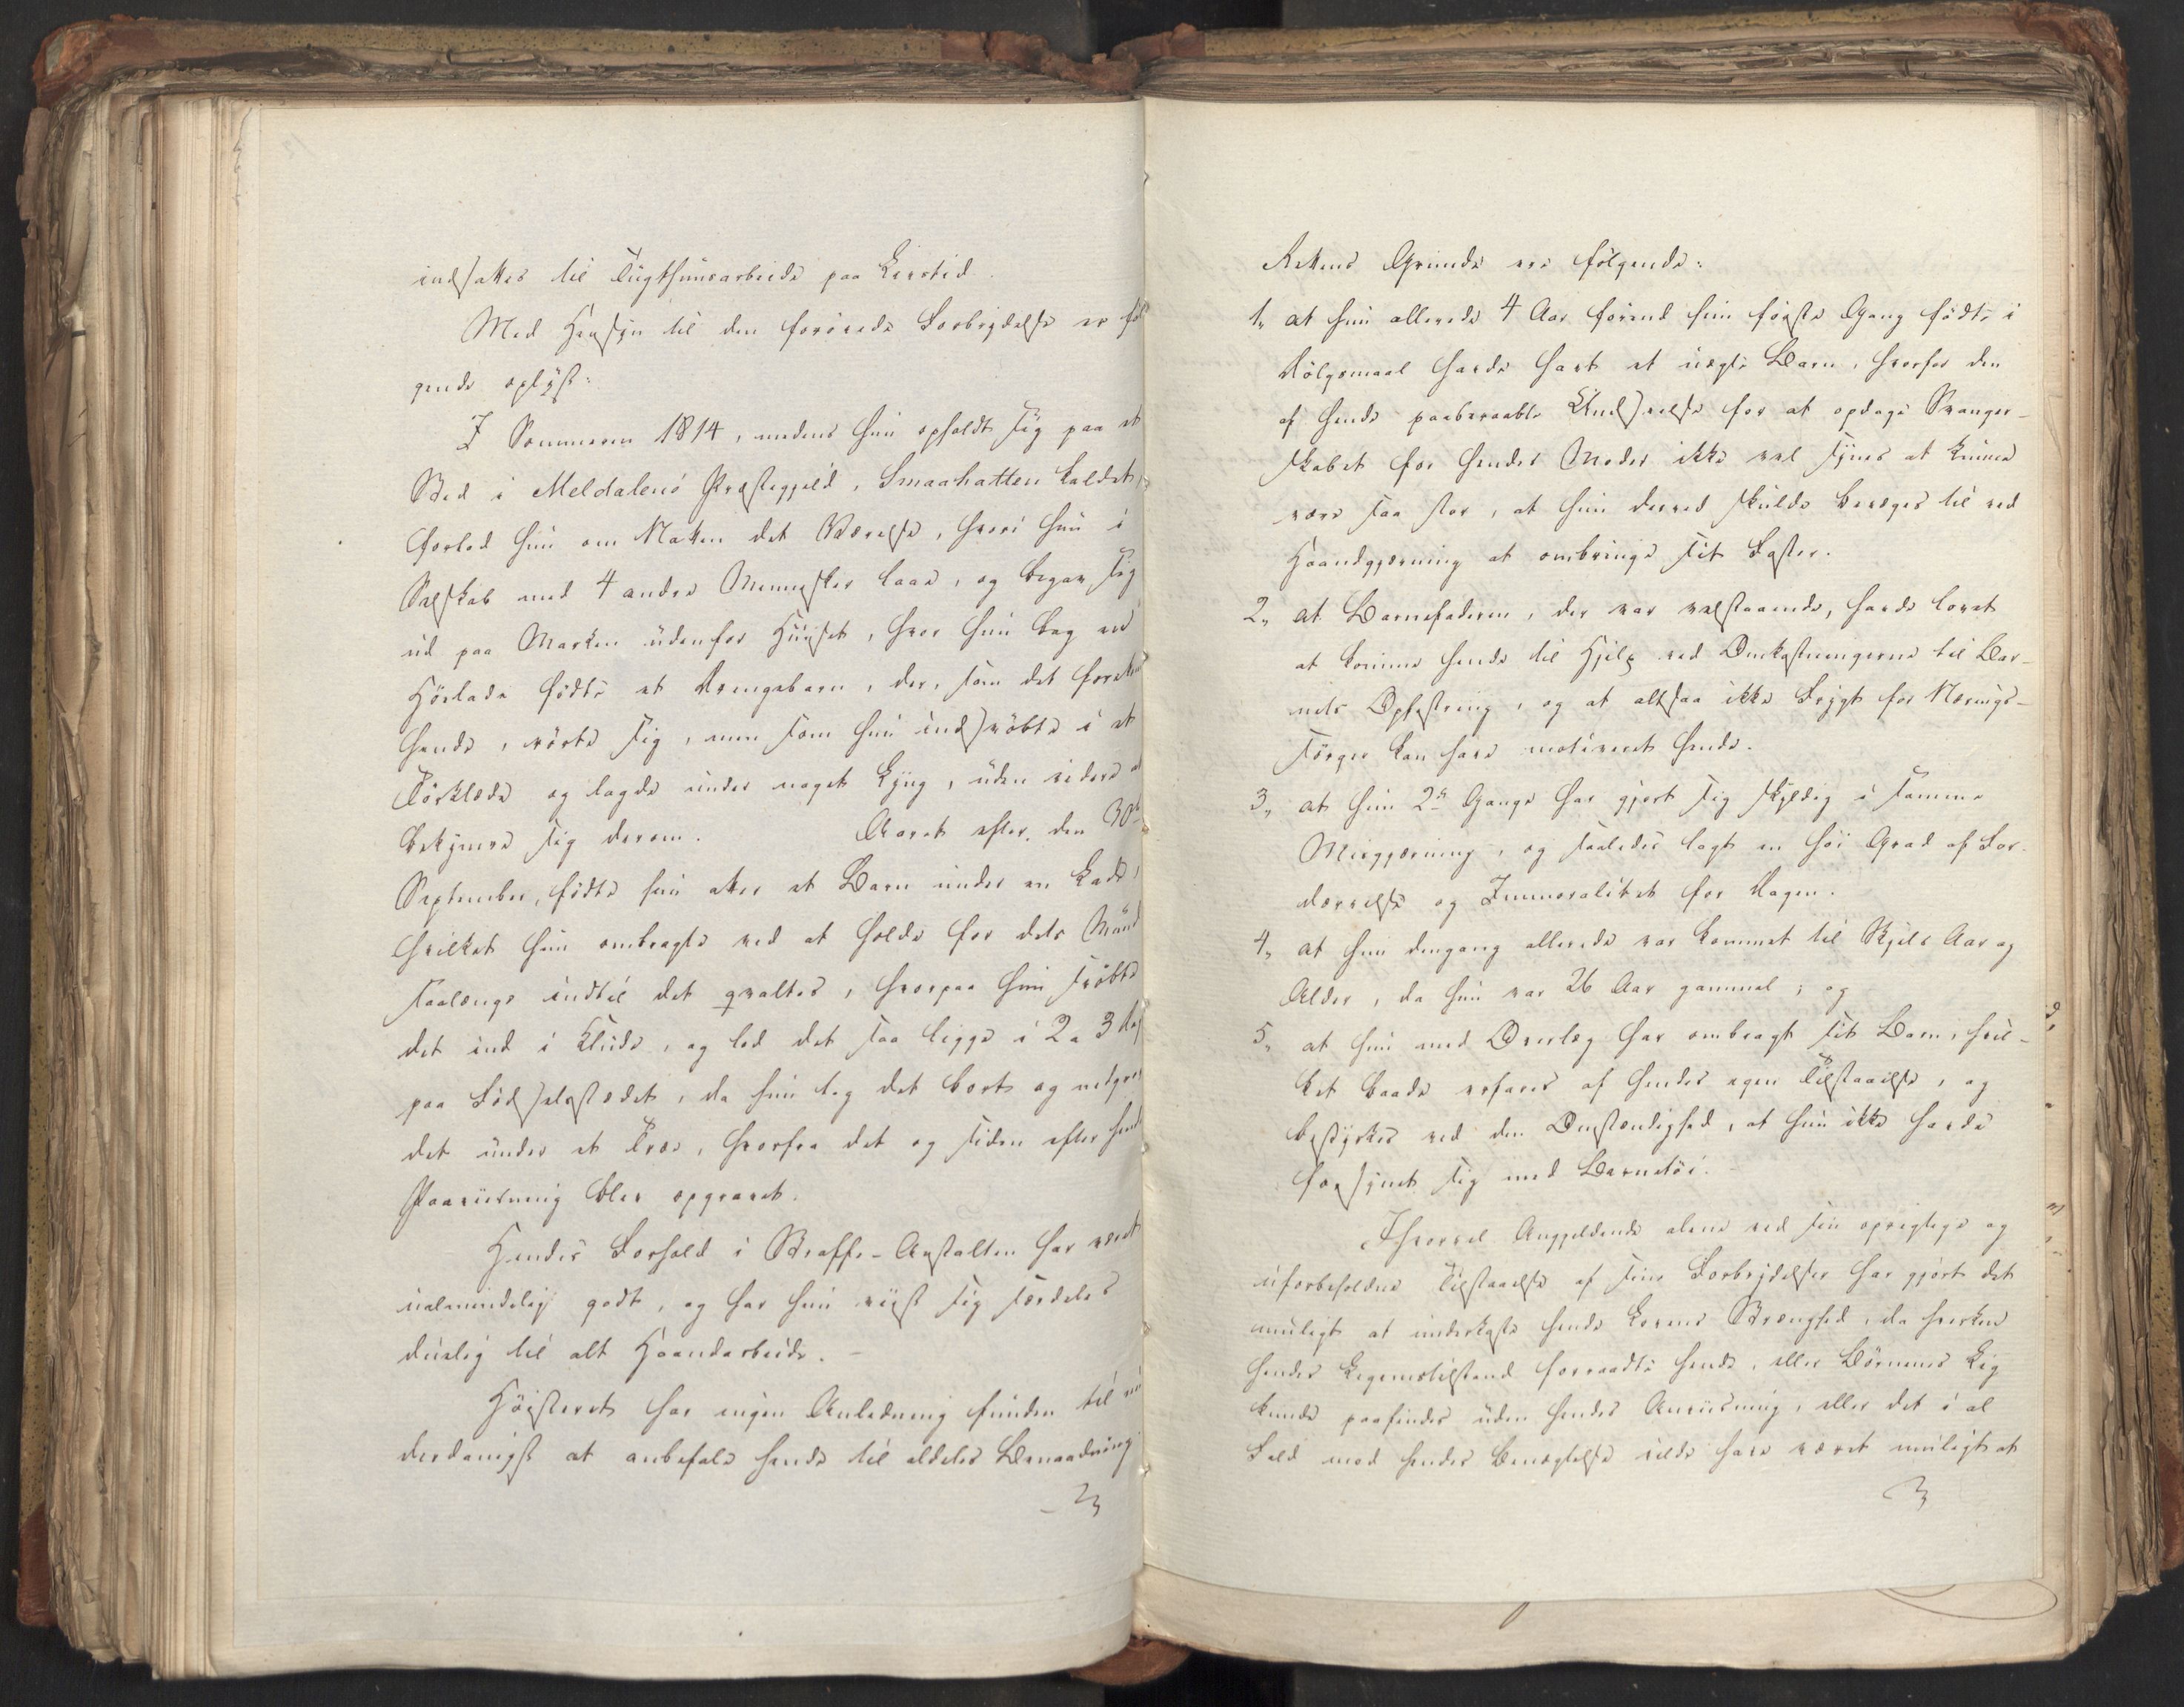 indsættes til Tugthuusarbeide paa Livstid.
Med Hensyn til den forövede Forbrydelse er föl
gende oplyst:
I Sommeren 1814, medens hun opholdt sig paa et
Sted i Meldalens Præstegjeld, Smaahatten kaldet,
forlod hun om Natten det Værelse, hvori hun i
Selskab med 4 andre Mennesker laae, og begav sig
ud paa Marken udenfor Huuset, hvor hun bag en
Höelade födte et Drengebarn, der, som det forekom
hende, rörte sig, men som hun indsvöbte i et
Forklæde og lagde under noget Lyng, uden videre at
bekymre sig derom. Aaret efter, den 30te
September, födte hun atter et Barn under en Lade,
hvilket hun ombragte ved at holde for dets Mund
saalænge indtil det qvaltes, hvorpaa hun svöbte
det ind i Klude, og lod det saa ligge i 2 a 3 Dage
paa Födselsstedet, da hun tog det bort og nedgrov
det under et Træe, hvorfra det og siden efter hendes
Paaviisning blev opgravet.
Hendes Forhold i Straffe-Anstalten har været
ualmindelig godt, og har hun viist sig særdeles
duelig til alt Haandarbeide. –
Höiesteret har ingen Anledning funden til un
derdanigst at anbefale hende til aldeles Benaadning
Rettens Grunde ere fölgende:
1, at hun allerede 4 Aar förend hun förste Gang födte i
Dölgsmaal havde havt et uægte Barn, hvorfor den
af hende paaberaabte Undseelse for at opdage Svanger-
skabet for hendes Moder ikke vel synes at kunne
være saa stor, at hun derved skulde bevæges til ved
Haandgjerning at ombringe sit Foster.
2, at Barnefaderen, der var velstaaende, havde lovet
at komme hende til Hjelp ved Omkostningerne til Bar-
nets Opfostring, og at altsaa ikke Frygt for Nærings-
sorger kan have motiveret hende.
3, at hun 2de Gange har gjort sig skyldig i samme
Misgjerning, og saaledes lagt en höi Grad af For-
dærvelse og Immoralitet for Dagen.
4, at hun dengang allerede var kommet til Skjels Aar og
Alder, da hun var 26 Aar gammel; og
5, at hun med Overlæg har ombragt sit Barn, hvil-
ket baade erfares af hendes egen Tilstaaelse, og
bestyrkes ved den Omstændighed, at hun ikke havde
forsynet sig med Barnetöi. –
Ihvorvel Angjeldende alene ved sin oprigtige og
uforbeholdne Tilstaaelse af sine Forbrydelser har gjort det
muligt at underkaste hende Lovens Strenghed, da hverken
hendes Legemstilstand forraadte hende, eller Börnenes Liig
kunde paafindes uden hendes Anviisning, eller det i al
Fald mod hendes Benægtelse vilde have været muligt at